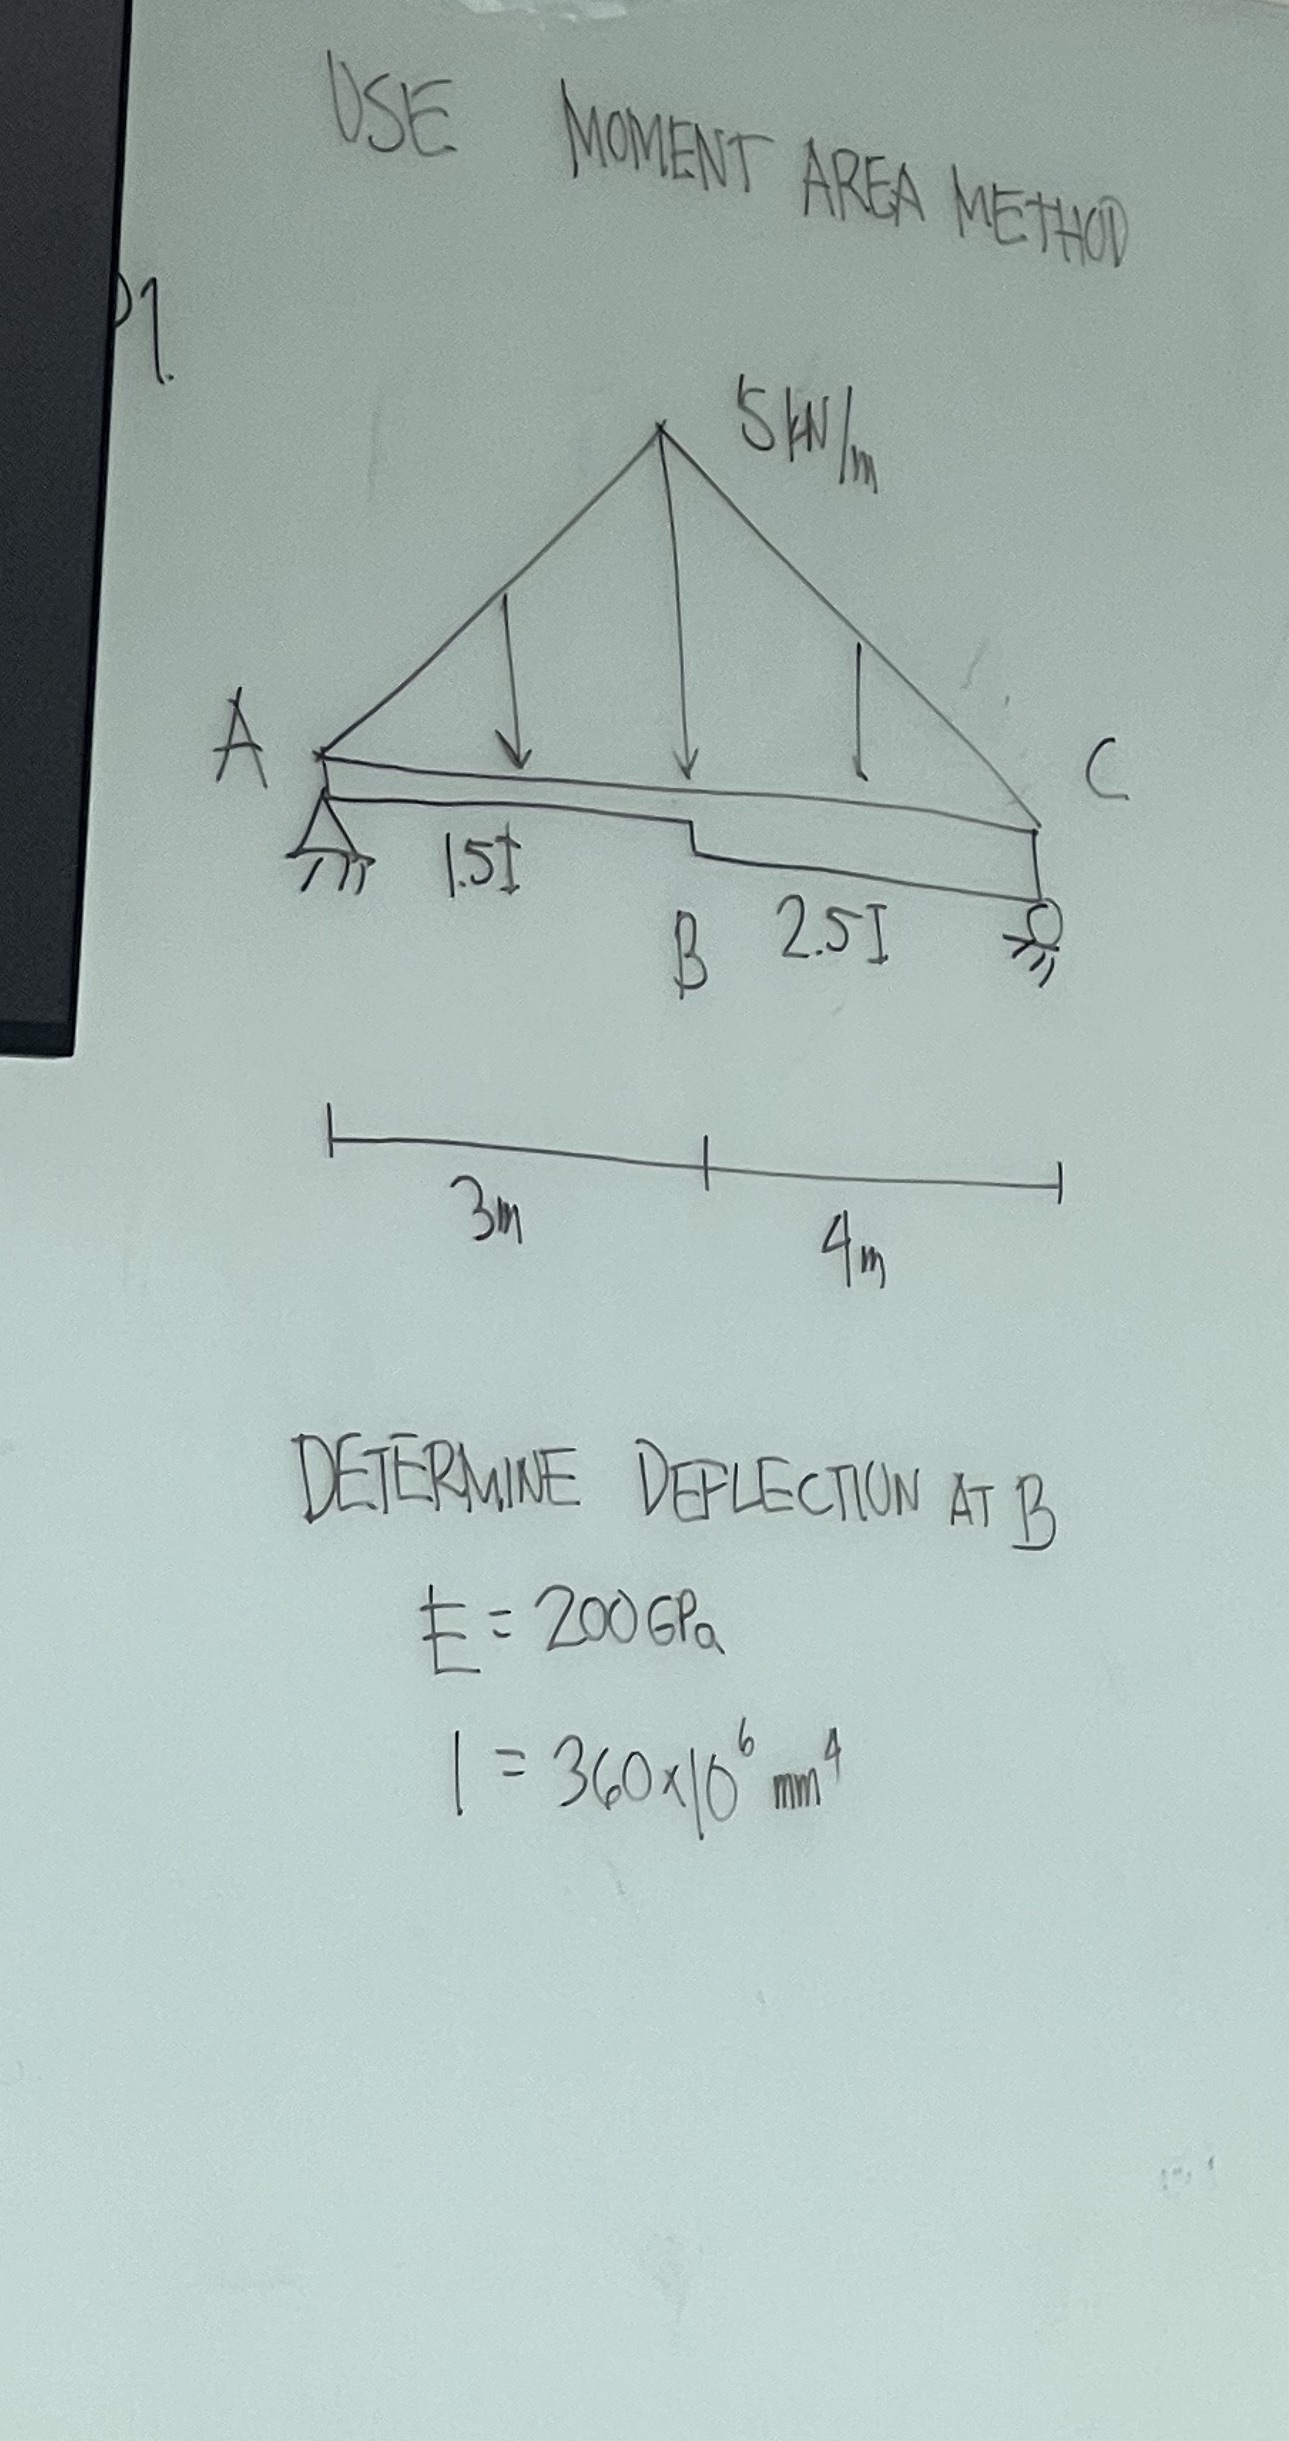 USE MOMENT AREA METHOD
1.
5 kN/m
A
C
1.5I
B
2.5I
3m
4m
DETERMINE DEFLECTION AT B
E = 200 GPa
I = 360x10⁶ mm⁴